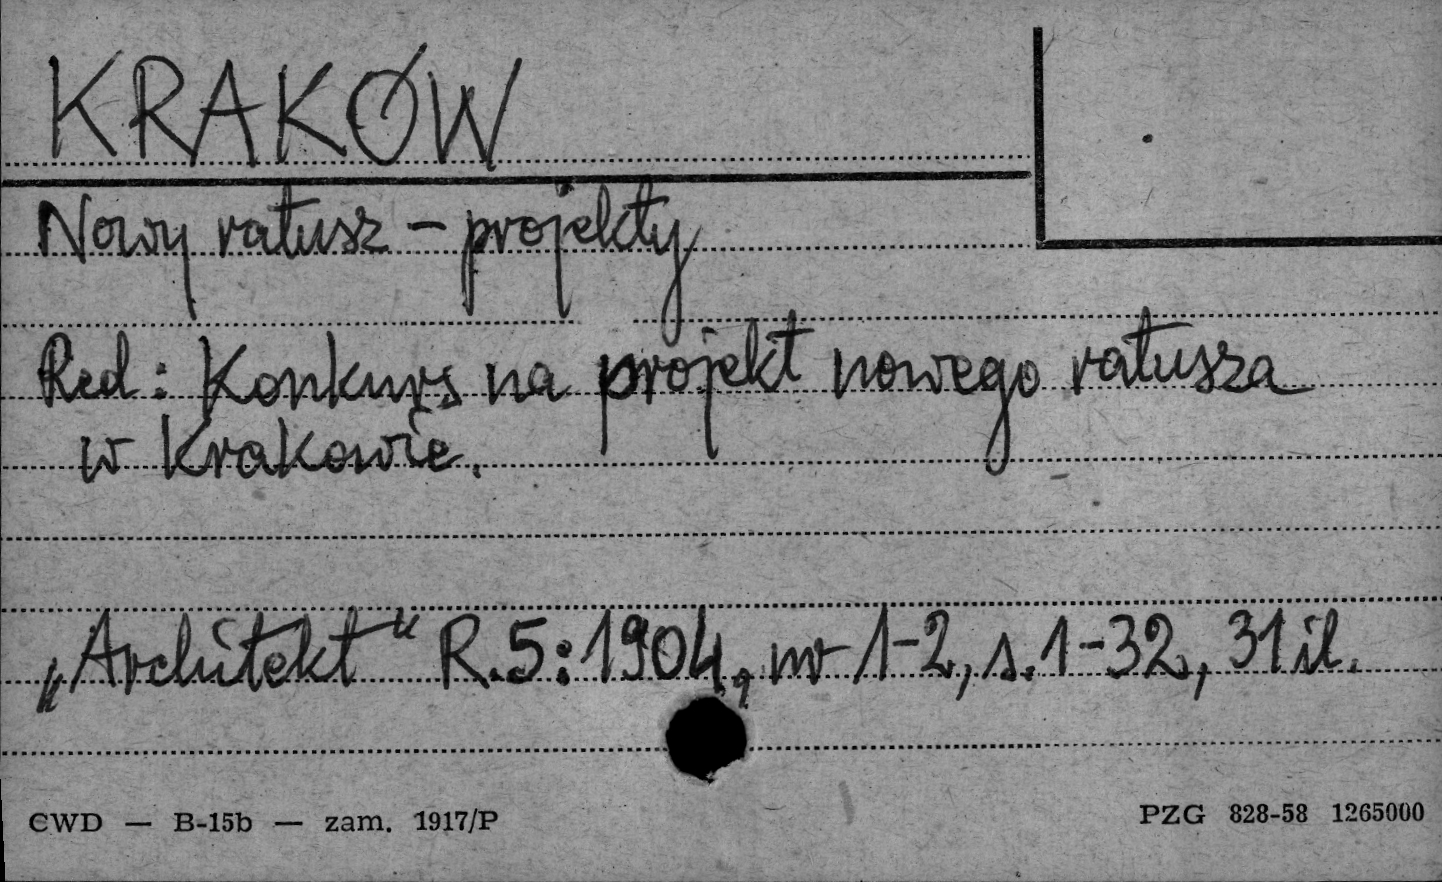 KRAKÓW
Nowy ratusz – projekty
Red: Konkurs na projekt nowego ratusza
w Krakowie.
„Architekt" R.5:1904, nr 1-2, s.1-32, 31 il.
CWD — B-15b — zam. 1917/P
PZG 828-58 1265000